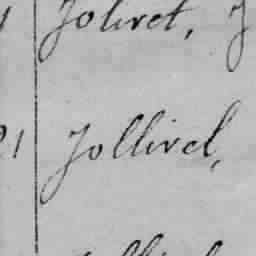 Jolivet, J
21 Jollivel,